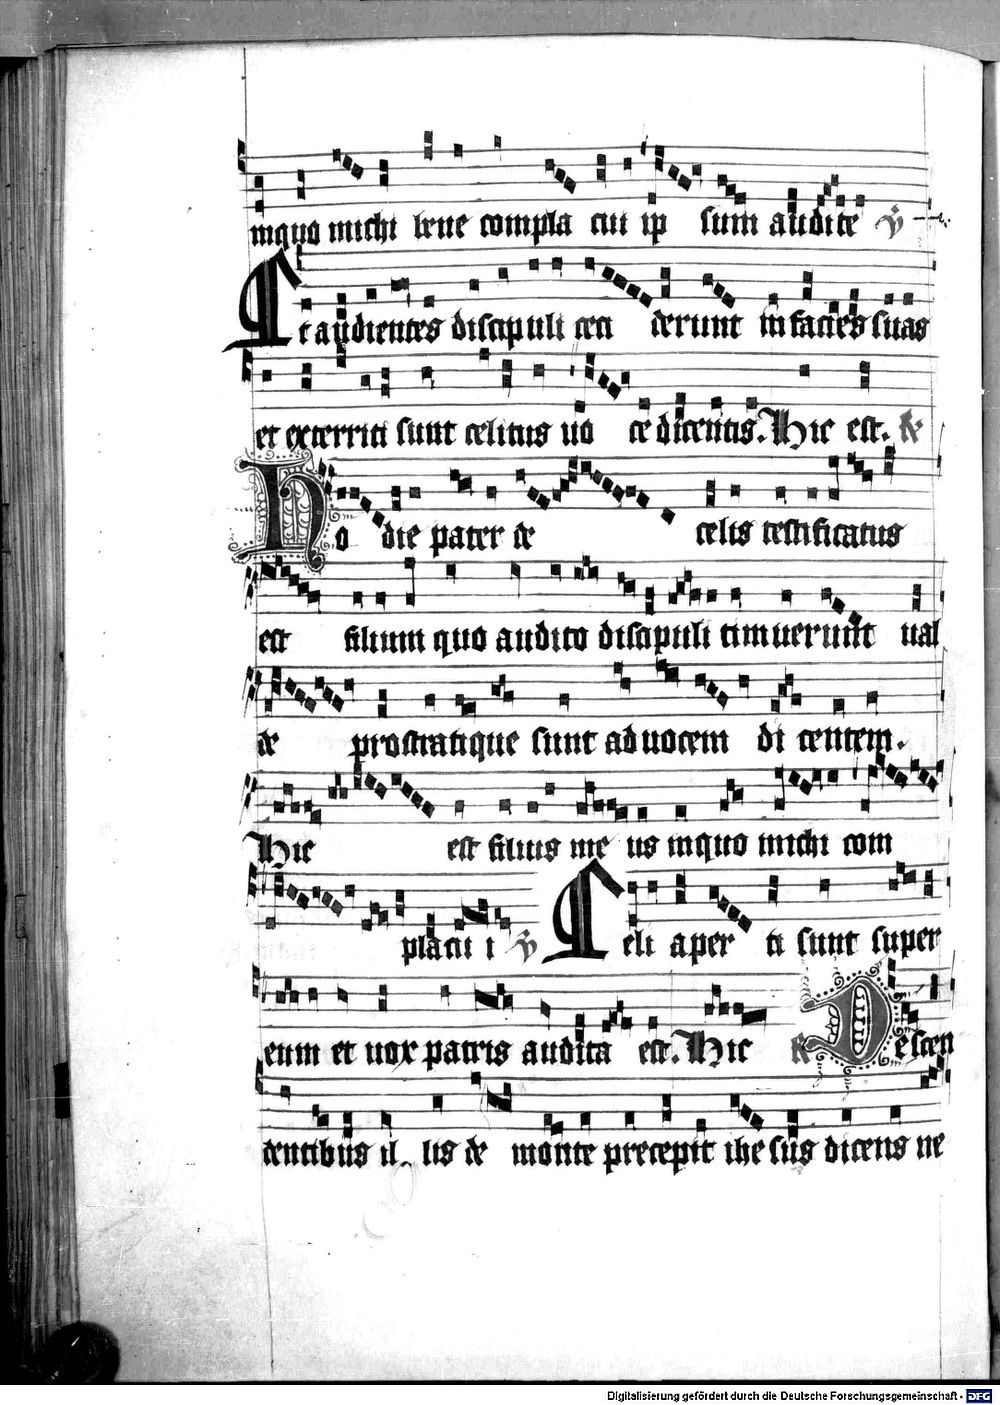 inquo michi bene compla cui ip sum audite ℣
Et audientes discipuli ceci derunt in facies suas
et exterriti sunt celitus uo ce dicentis. Hic est. ℟
Ho die pater de celis testificatus
est filium quo audito discipuli timuerunt ual
de prostratique sunt ad uocem di centem.
Hic est filius me us inquo michi com
placu i ℣ Celi aper ti sunt super
eum et uox patris audita est. Hic ℟ Descen
dentibus il lis de monte precepit ihe sus dicens ne
Digitalisierung gefördert durch die Deutsche Forschungsgemeinschaft - DFG